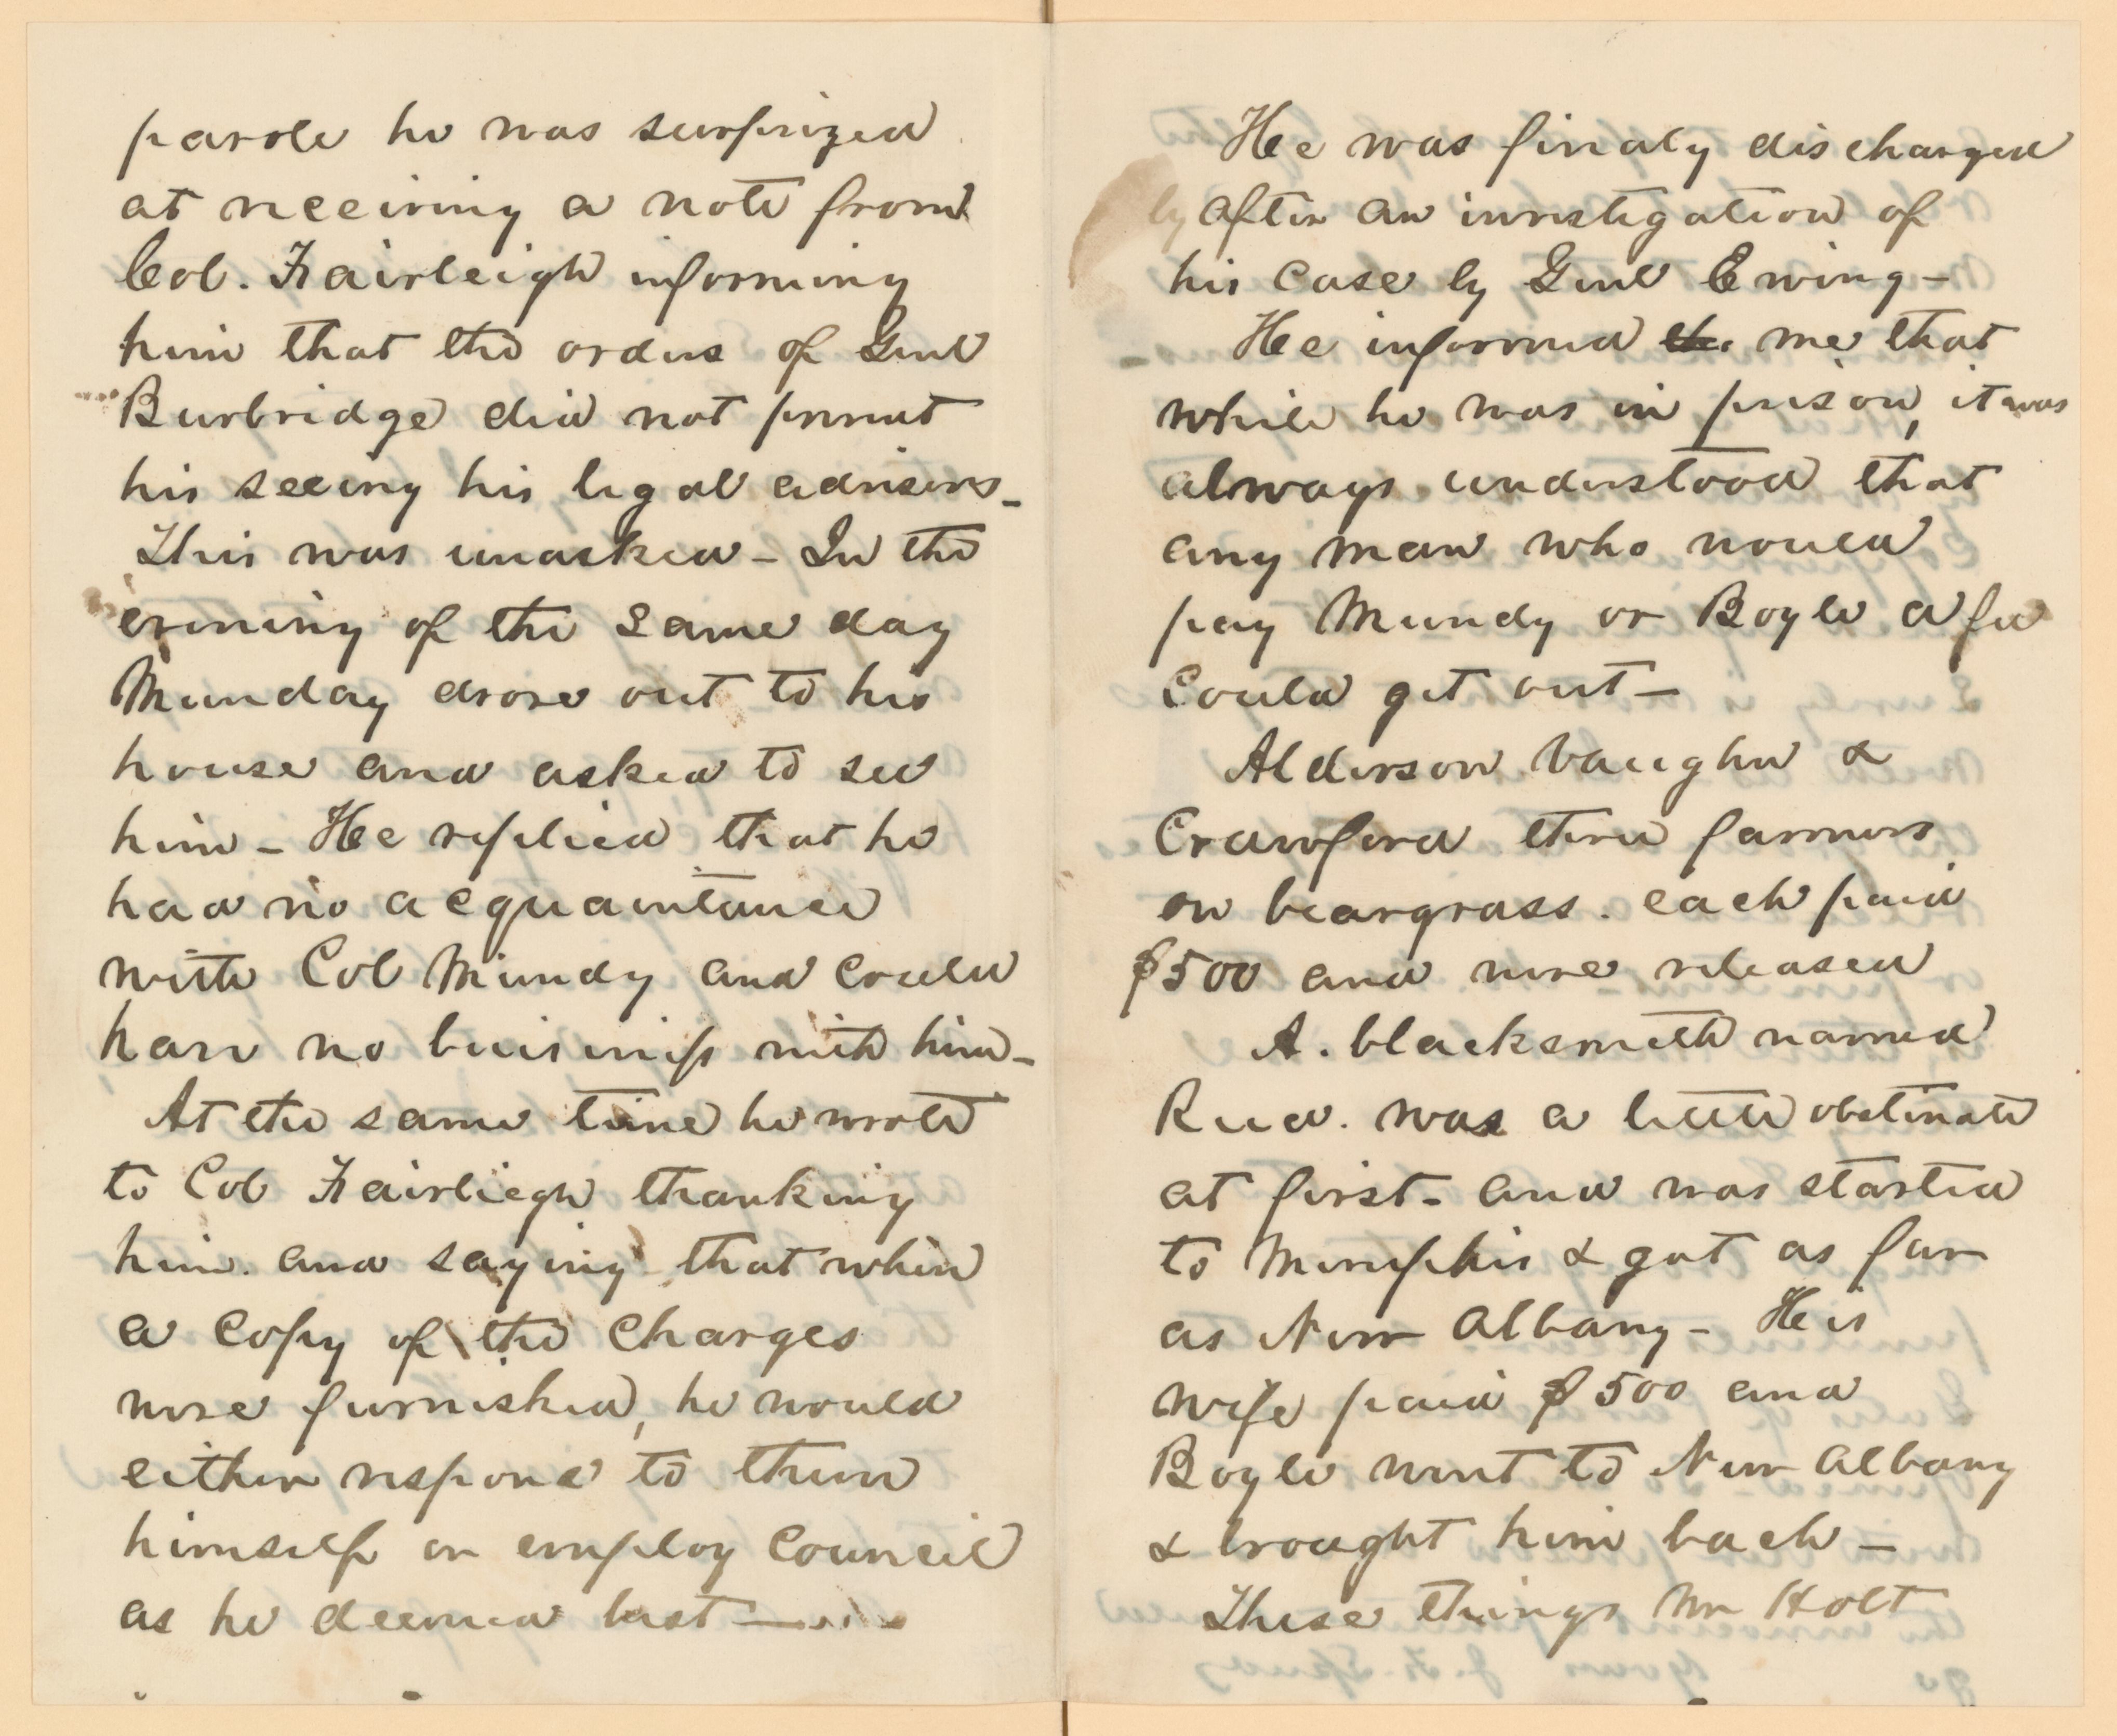 parole he was surprized
at receiving a note from
Col. Fairleigh informing
him that the orders of Genl
Burbridge did not permit
his seeing his legal advisers -
This was unasked - In the
evening of the same day
Munday drove out to his
house and asked to see
him - He replied that he
had no acquaintance
with Col Mundy and could
have no buisiness with him -
At the same time he wrote
to Col Fairliegh thanking
him. and saying that when
a copy of the charges
were furnished, he would
either respond to them
himself or employ Council
as he deemed best -
He was finaly discharged
by after an investigation of
his case by Genl Ewing -
He informed the me that
while he was in prison, it was
always understood that
any man who would
pay Mundy or Boyle a fee
could get out -
Alderson Vaughn &
Crawford three farmers
on beargrass. each paid
$500 and were released
A. blacksmith named
Reed. was a little obstinate
at first - and was started
to Memphis & got as far
as New Albany - He is
wife paid $500 and
Boyle went to New Albany
& brought him back -
These things Mr Holt